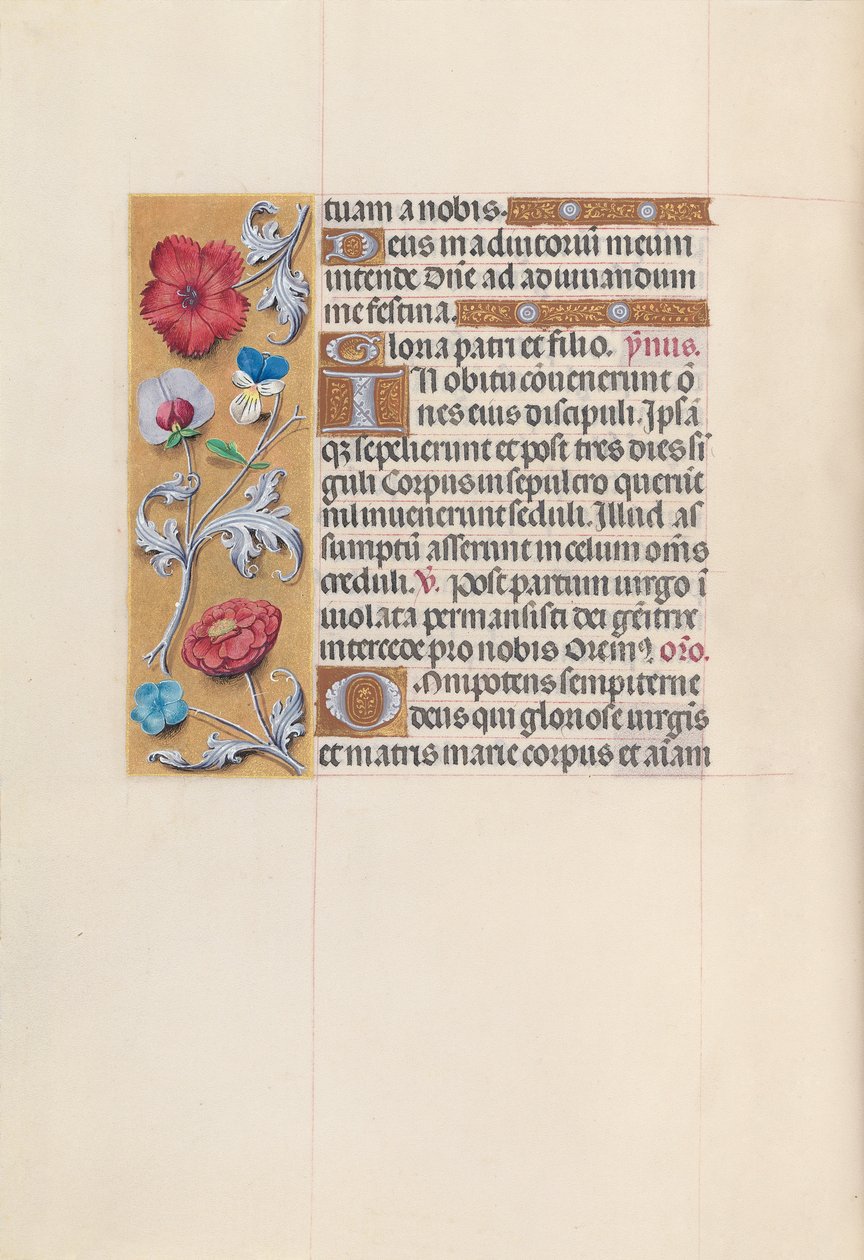 tuam a nobis.
Deus in adiutoriū meum
intende Dn̄e ad adiuuandum
me festina.
Gloria patri et filio. ẏmnus.
IN obitu cōuenerunt ō
nes eius discipuli. Ipsā
qȝ sepelierunt et post tres dies si
guli Corpus in sepulcro querūt
nil inuenerunt seduli. Illud as
sumptū asserunt in celum om̄s
creduli. V̇. post partum uirgo ī
uiolata permansisti dei gēitrix
intercede pro nobis Oremꝰ oro͞.
Omnipotens sempiterne
deus qui gloriose uirgīs
et matris marie corpus et aīam